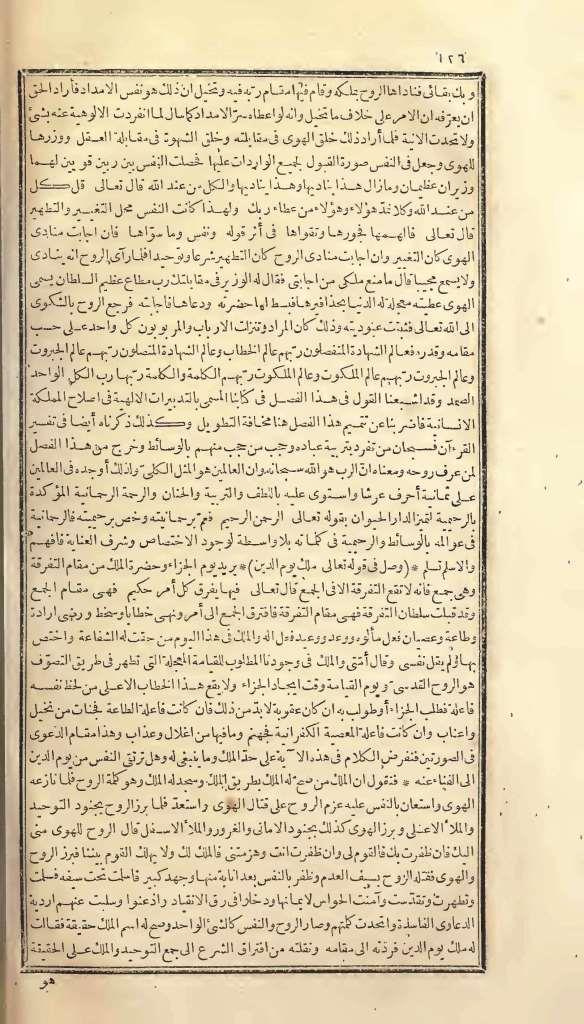 ١٢٦
وبك بقائى فناداها الروح بملكه وقام فيها مقام ربه فيه وتخيل ان ذلك هو نفس الامداد فأراد الحق
ان يعرّفه ان الامر على خلاف ما تخيل وانه لو أعطاه سرّ الامداد كما سال لما انفردت الالوهية عنه بشئ
ولاتحدت الانية فلما أراد ذلك خلق الهوى فى مقابلته وخلق الشهوة فى مقابلة العقل ووزرها
للهوى وجعل فى النفس صورة القبول لجميع الواردات عليها فحصلت النفس بين ربين قويين لهما
وزيران عظيمان ومازال هذا يناديها وهذا يناديها والكل من عند الله قال تعالى قل كل
من عند الله وكلا نمدّ هؤلاء وهؤلاء من عطاء ربك ولهذا كانت النفس محل التغيير والتطهير
قال تعالى فألهمها فجورها وتقواها فى أثر قوله ونفس وما سوّاها فان اجابت منادى
الهوى كان التغيير وان اجابت منادى الروح كان التطهير شرعا وتوحيدا فلما رأى الروح انه ينادى
ولا يسمع مجيبا قال ما منع ملكى من اجابتى فقال له الوزير فى مقابلتك رب مطاع عظيم السلطان يسمى
الهوى عطيته معجلة له الدنيا بحذافيرها فبسط لها حضرته ودعاها فاجابته فرجع الروح بالشكوى
الى الله تعالى فثبتت عبوديته وذلك كان المراد وتنزلت الارباب والمربوبون كل واحد على حسب
مقامه وقدره فعالم الشهادة المنفصلون ربهم عالم الخطاب وعالم الشهادة المتصلون ربهم عالم الجبروت
وعالم الجبروت ربهم عالم الملكوت وعالم الملكوت ربهم الكلمة والكلمة ربها رب الكل الواحد
الصمد وقد اشبعنا القول فى هذا الفصل فى كتابنا المسمى بالتدبيرات الالهية فى اصلاح المملكة
الانسانية فاضربنا عن تتميم هذا الفصل هنا مخافة التطويل وكذلك ذكرناه أيضا فى تفسير
القرءآن فسبحان من تفرد بتربية عباده وحجب من حجب منهم بالوسائط وخرج من هذا الفصل
لمن عرف روحه ومعناه انّ الرب هو الله سبحانه وان العالمين هو المثل الكلى ولذلك أوجده فى العالمين
على ثمانية أحرف عرشا واستوى عليه باللطف والتربية والحنان والرحمة الرحمانية المؤكدة
بالرحيمية لتميز الدار الحيوان بقوله تعالى الرحمن الرحيم فعمّ برحمانيته وخص برحيميته فالرحمانية
فى عوالمه بالوسائط والرحيمية فى كلماته بلا واسطة لوجود الاختصاص وشرف العناية فافهم
والا سلم تسلم * (وصل فى قوله تعالى ملك يوم الدين) * يريد يوم الجزاء وحضرة الملك من مقام التفرقة
وهى جمع فانه لا تقع التفرقة الا فى الجمع قال تعالى فيها يفرق كل أمر حكيم فهى مقام الجمع
وقد قبلت سلطان التفرقة فهى مقام التفرقة فافترق الجمع الى أمر ونهى خطابا وسخط ورضى ارادة
وطاعة وعصيان فعل مألوه ووعد ووعيد فعل اله والملك فى هذا اليوم من حقت له الشفاعة واختص
بها ولم يقل نفسى وقال أمّتى والملك فى وجودنا المطلوب للقيامة المعجلة التى تظهر فى طريق التصوّف
هو الروح القدسى ويوم القيامة وقت ايجاد الجزاء ولا يقع هذا الخطاب الاعلى من لحظ نفسه
فاعلة فطلب الجزاء أو طولب به ان كان عقوبة لابدّ من ذلك فان كانت فاعلة الطاعة فجنات من نخيل
واعناب وان كانت فاعلة المعصية الكفرانية فجهنم ومافيها من اغلال وعذاب وهذا مقام الدعوى
فى الصورتين فنفرض الكلام فى هذه الآية على حدّ الملك وما ينبغى له وهل ترتقى النفس من يوم الدين
الى الفناء عنه * فنقول ان الملك من صح له الملك بطريق الملك وسجد له الملك وهو كلمة الروح فلما نازعه
الهوى واستعان بالنفس عليه عزم الروح على قتال الهوى واستعدّ فلما برز الروح بجنود التوحيد
والملأ الاعلى وبرز الهوى كذلك بجنود الامانى والغرور والملأ الاسفل قال الروح للهوى منى
اليك فان ظفرت بك فالقوم لى وان ظفرت انت وهزمتنى فالملك لك ولا يهلك القوم بيننا فبرز الروح
والهوى فقتله الروح بسيف العدم وظفر بالنفس بعد اباية منها وجهد كبير فاسلمت تحت سيفه فسلمت
وتطهرت وتقدّست وآمنت الحواس لايمانها ودخلوا فى رق الانقياد واذعنوا وسلبت عنهم اردية
الدعاوى الفاسدة واتحدت كلمتهم وصار الروح والنفس كالشئ الواحد وصح له اسم الملك حقيقة فقال له
له ملك يوم الدين فردّته الى مقامه ونقلته من افتراق الشرع الى جمع التوحيد والملك على الحقيقة
هو